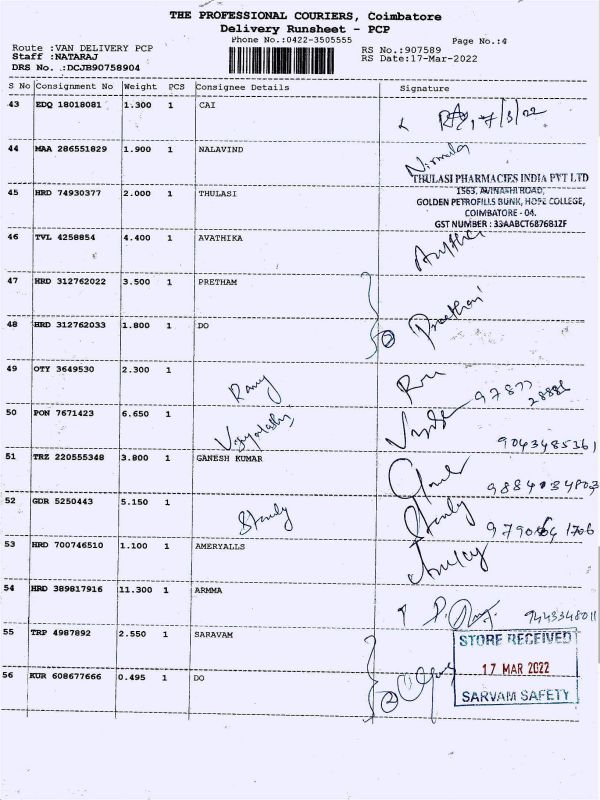 THE PROFESSIONAL COURIERS, Coimbatore
Delivery Runsheet - PCP
Phone No.:0422-3505555
Page No.:4
Route :VAN DELIVERY PCP
RS No.:907589
Staff :NATARAJ
RS Date:17-Mar-2022
DRS No. .:DCJB90758904
S No Consignment No Weight PCS Consignee Details Signature
43 EDQ 18018081 1.300 1 CAI
17/3/22
44 MAA 286551829 1.900 1 NALAVIND
Nirmala
THULASI PHARMACIES INDIA PVT LTD
45 HRD 74930377 2.000 1 THULASI
1563, AVINASHI ROAD,
GOLDEN PETROFILLS BUNK, HOPE COLLEGE,
COIMBATORE - 04.
GST NUMBER : 33AABCT6876B1ZF
46 TVL 4258854 4.400 1 AVATHIKA
47 HRD 312762022 3.500 1 PRETHAM
48 HRD 312762033 1.800 1 DO
2
49 OTY 3649530 2.300 1
Ramy
97877
28886
50 PON 7671423 6.650 1
9043485361
51 TRZ 220555348 3.800 1 GANESH KUMAR
9884034803
52 GDR 5250443 5.150 1
Stanly Stanly
53 HRD 700746510 1.100 1 AMERYALLS
54 HRD 389817916 11.300 1 ARMMA
9443348011
55 TRP 4987892 2.550 1 SARAVAM
STORE RECEIVED
17 MAR 2022
SARVAM SAFETY
56 KUR 608677666 0.495 1 DO
2